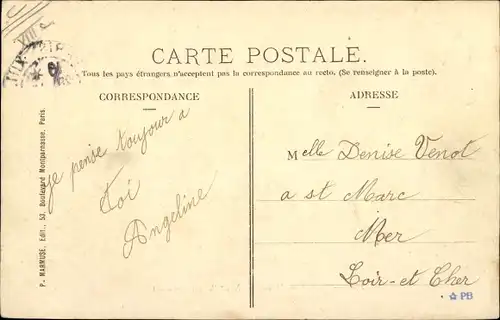 CARTE POSTALE.
Tous les pays étrangers n'acceptent pas la correspondance au recto. (Se renseigner à la poste).
CORRESPONDANCE
ADRESSE
je pense toujour a
toi
Angeline
Melle Denise Venot
a st Marc
Mer
Loir-et Cher
P. MARMUSE, Edit., 52, Boulevard Montparnasse, Paris.
VIII c
PB